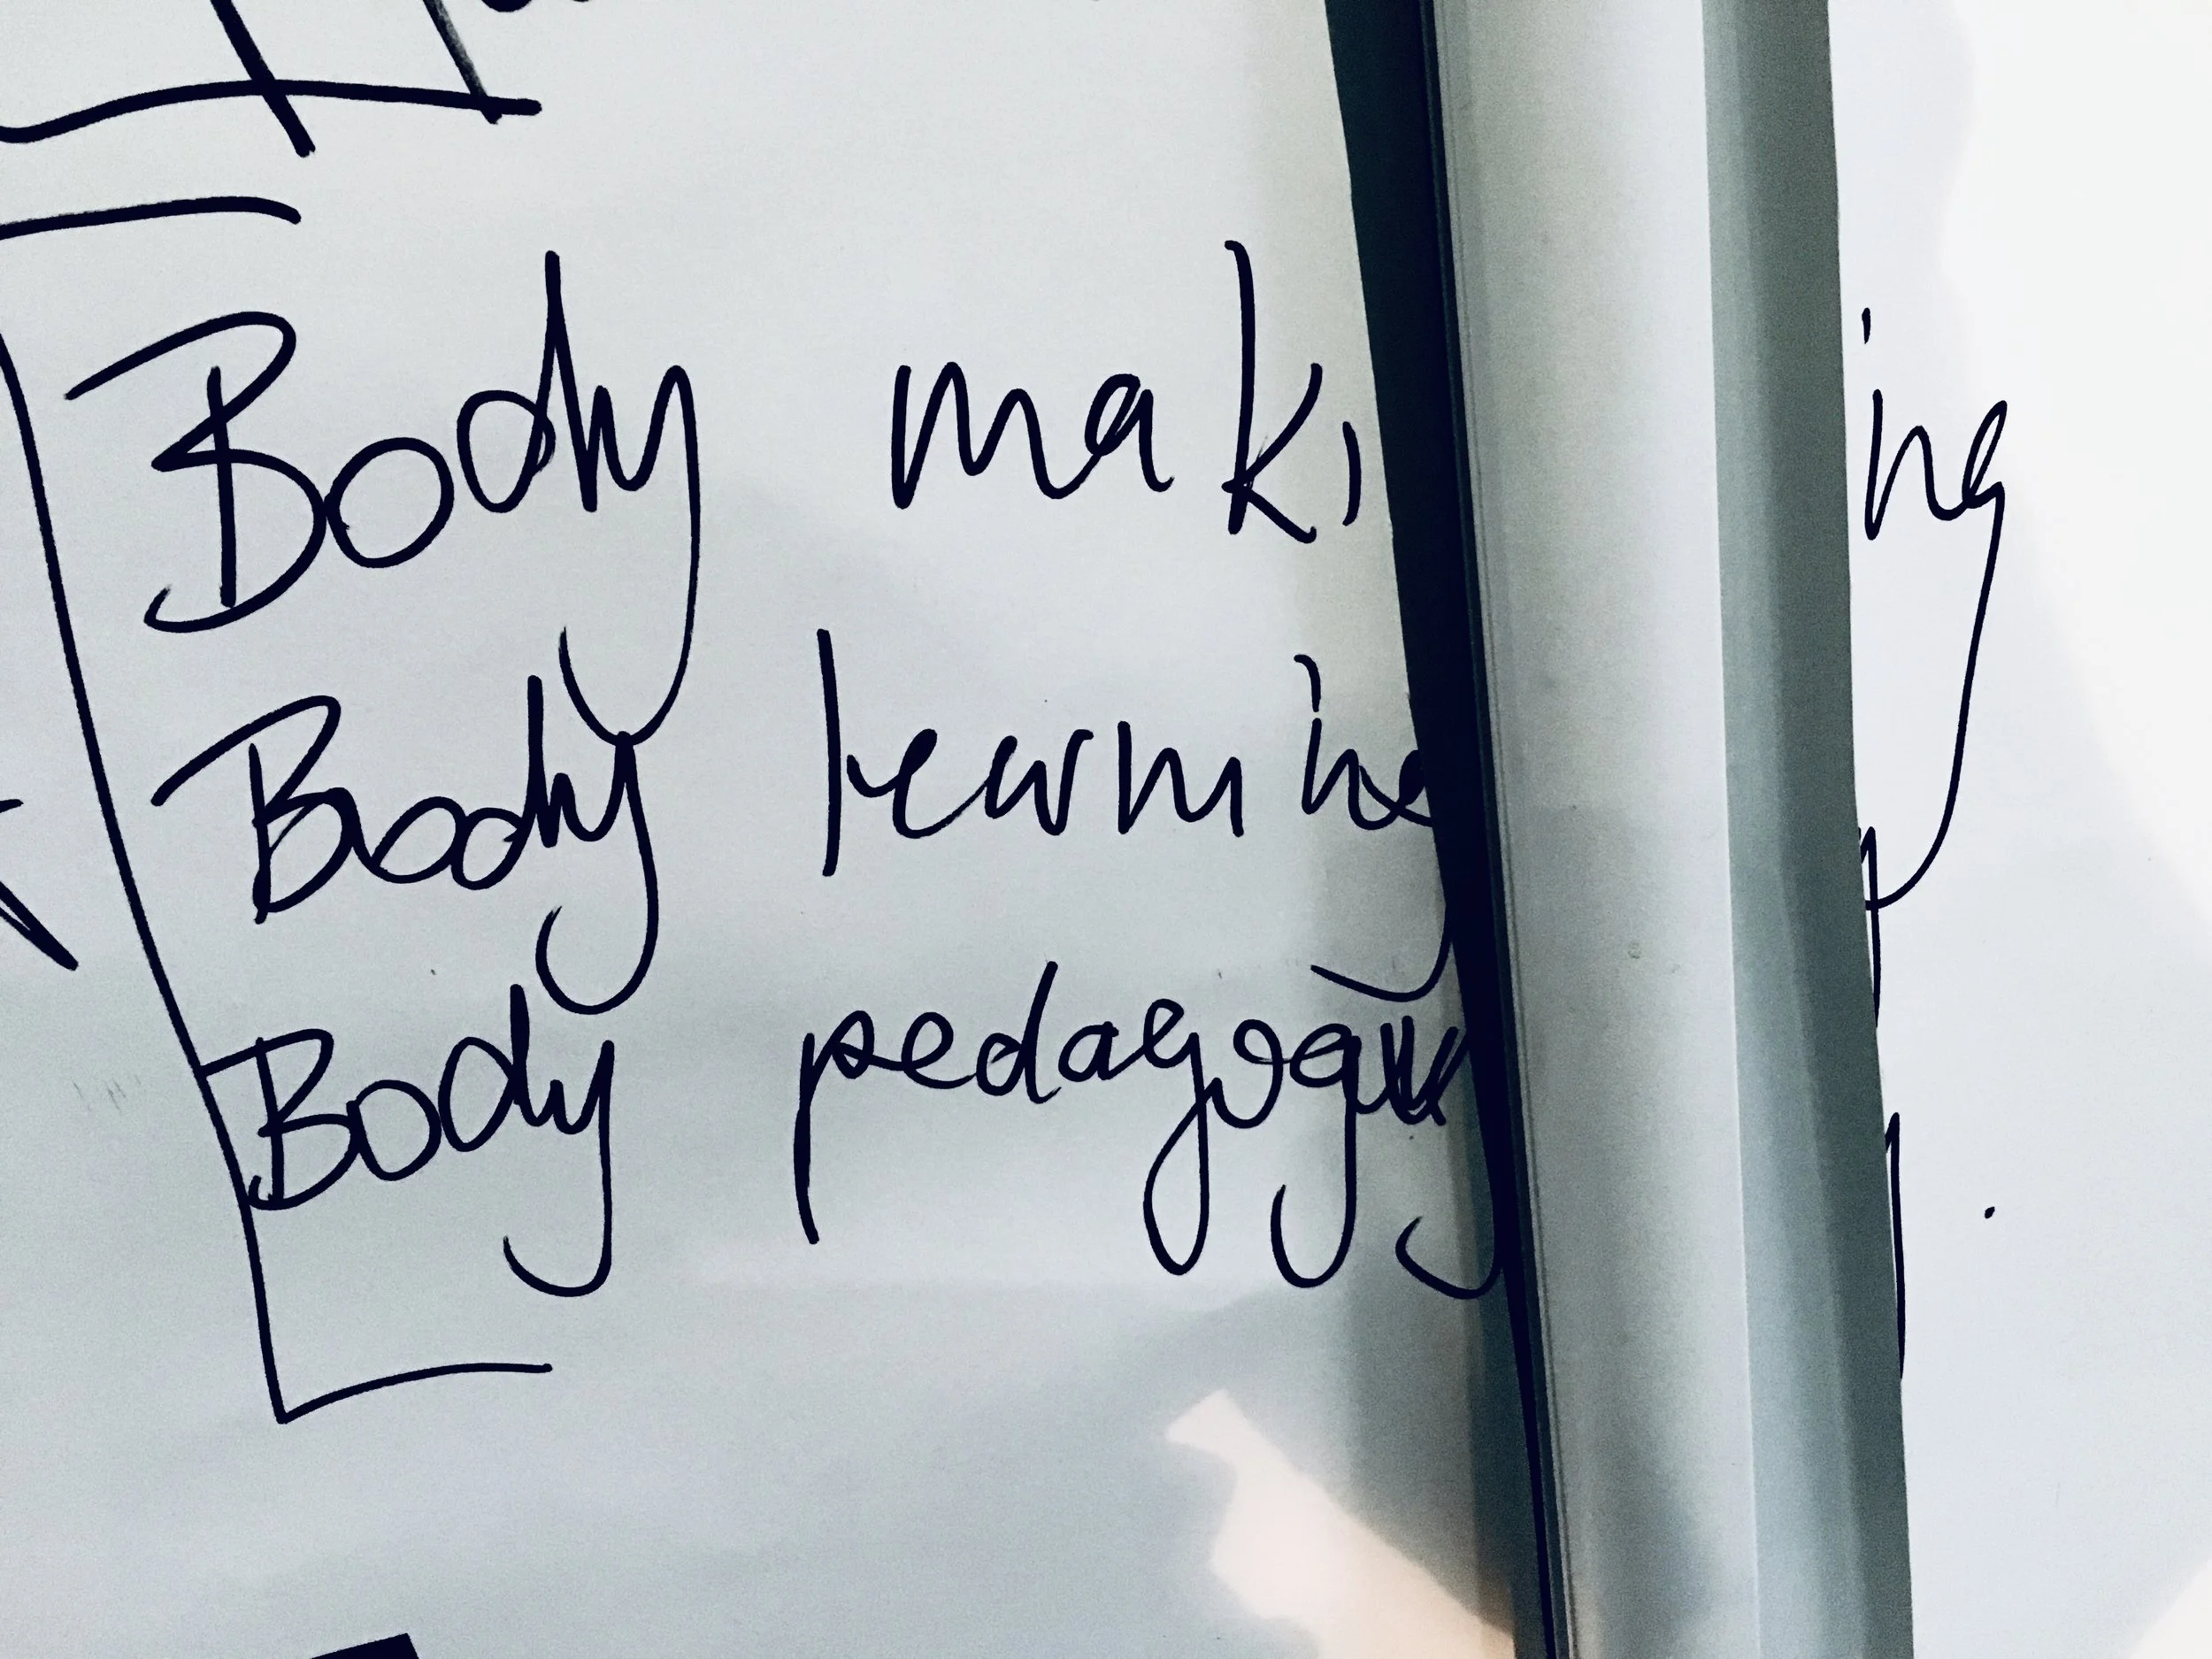 Body making
Body learning
Body pedagogy